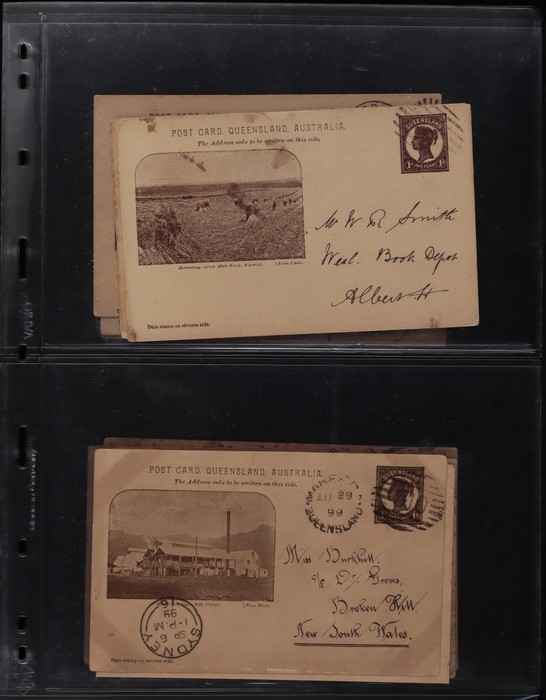 POST CARD, QUEENSLAND, AUSTRALIA.
The Address only to be written on this side.
QUEENSLAND
1D ONE PENNY 1D
Mr W R Smith
Wesl. Book Depot
Albert St
Harvesting, Green Hills Farm, Warwick.
[From Photo.
Date stamp on reverse side.
POST CARD, QUEENSLAND, AUSTRALIA.
The Address only to be written on this side.
QUEENSLAND
AU 29
99
QUEENSLAND
Miss
c/o Dr Groves,
Broken Hill,
New South Wales.
Mill,
[From Photo.
SYDNEY
SP 6
1-P.M
99
16
Date stamp on reverse side.